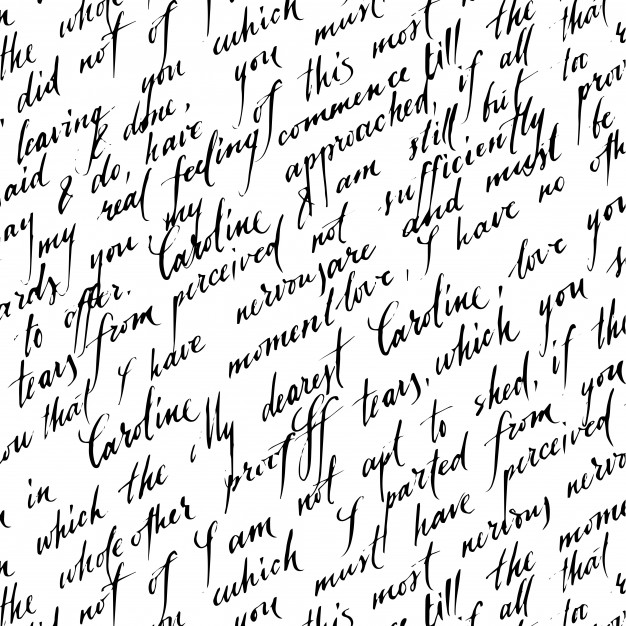 the whole
did not of which must the that
leaving you you this most
said & done, have of commence till
ay & do, real feeling approached, if all too
my my & am still but prov
ards you Caroline not sufficiently be
to offer. perceived and must oth
tears from nervous are I have no
you that I have moment love, love you
Caroline My dearest Caroline, you s
in which the proof tears, which if the
whole other I am not apt to shed, you
the did not of which I parted from perceived
you must have nervous nervo
this most till the mome
if all that too